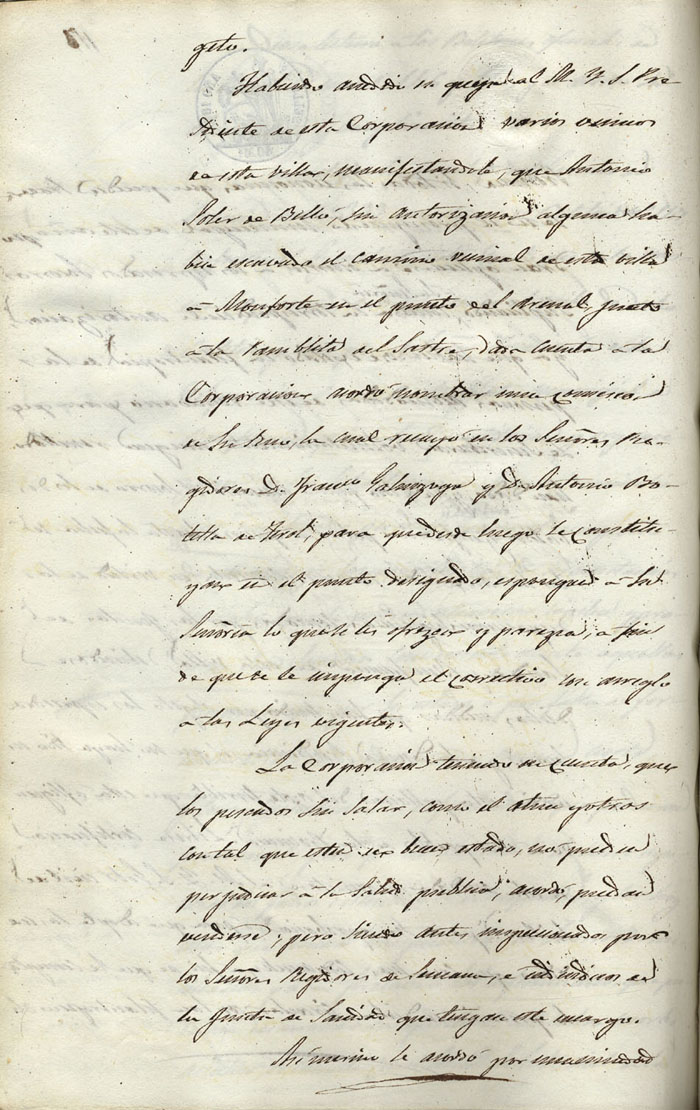 geto.
Habiendo acudido en queja al M. Y. S. Pre-
sidente de esta Corporacion varios vecinos
de esta villa, manifestandole, que Antonio
Soler de Bellió, sin autorizacion alguna ha-
bia escavado el camino vecinal de esta villa
a Monforte en el punto del Arenal, junto
a la Ramblita del Sastre, dada cuenta a la
Corporacion acordó nombrar una comision
de su seno, la cual recayó en los Señores Re-
gidores D. Franco y D. Antonio Bo-
tella de, para que desde luego se constitu-
yan en el punto designado, espongan a Su
Señoria lo que se les ofrezca y parezca, a fin
de que se le imponga el correctivo con arreglo
a las Leyes vigentes.
La Corporacion teniendo en cuenta, que
los pescados sin salar, como el atun y otros
con tal que esten en buen estado, no pueden
perjudicar a la Salud publica, acordó, puedan
venderse; pero siendo antes inspeccionados por
los Señores Regidores de Semana, e individuos de
la Junta de Sanidad que tengan este encargo.
Asimismo se acordó por unanimidad